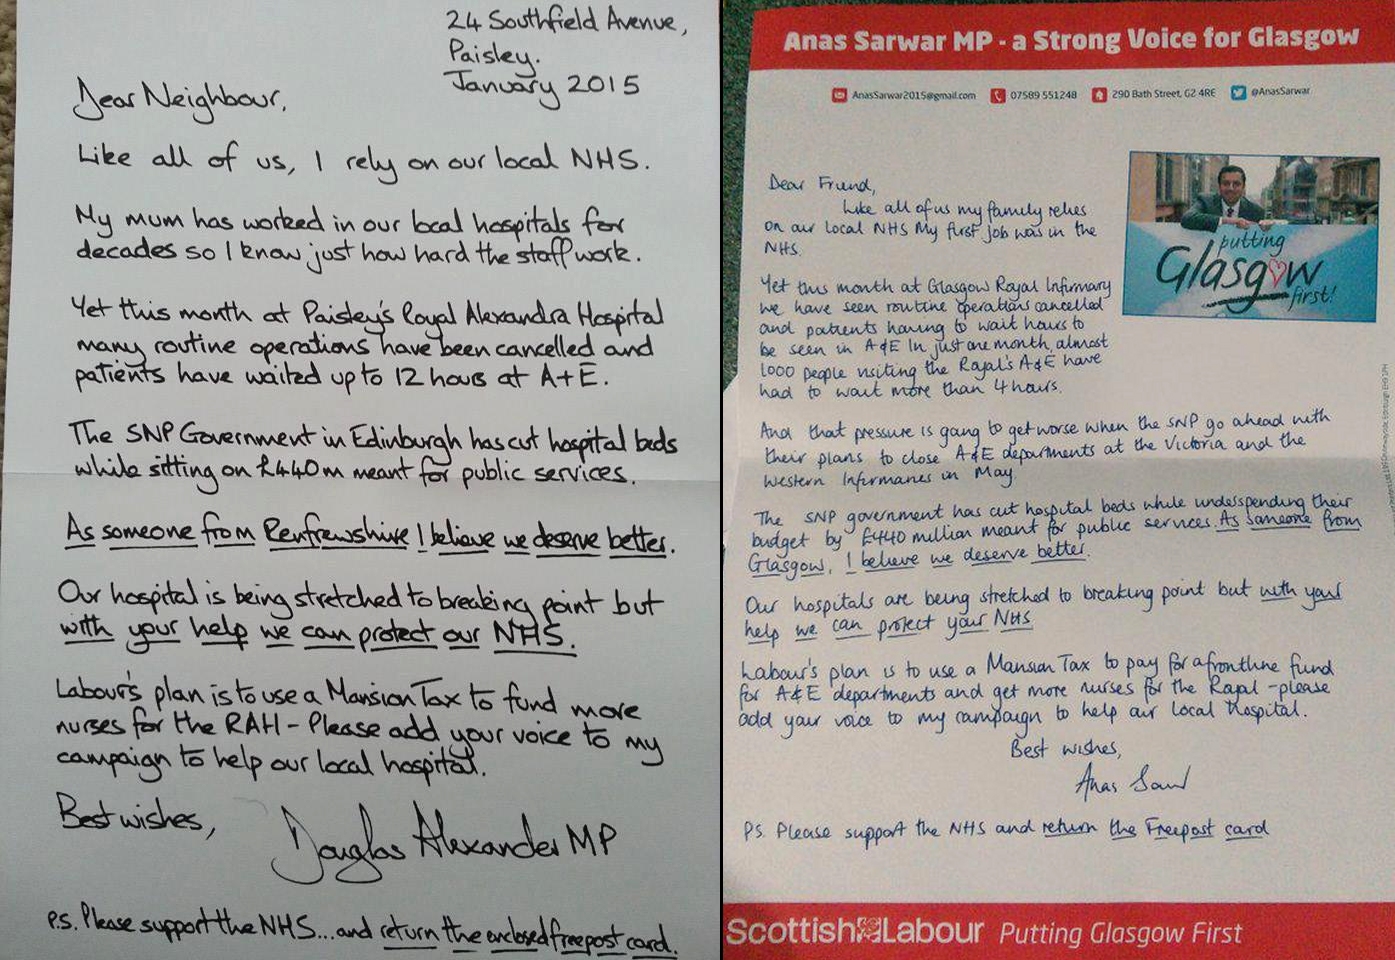 24 Southfield Avenue,
Paisley.
January 2015
Dear Neighbour,
Like all of us, I rely on our local NHS.
My mum has worked in our local hospitals for
decades so I know just how hard the staff work.
Yet this month at Paisley's Royal Alexandra Hospital
many routine operations have been cancelled and
patients have waited up to 12 hours at A+E.
The SNP Government in Edinburgh has cut hospital beds
while sitting on £440m meant for public services.
As someone from Renfrewshire I believe we deserve better.
Our hospital is being stretched to breaking point but
with your help we can protect our NHS.
Labour's plan is to use a Mansion Tax to fund more
nurses for the RAH - Please add your voice to my
campaign to help our local hospital.
Best wishes,
Douglas Alexander MP
P.S. Please support the NHS... and return the enclosed freepost card.
Anas Sarwar MP - a Strong Voice for Glasgow
AnasSarwar2015@gmail.com 07589 551248 290 Bath Street, G2 4RE @AnasSarwar
putting
Glasgow
first!
Dear Friend,
Like all of us my family relies
on our local NHS My first job was in the
NHS.
Yet this month at Glasgow Royal Infirmary
we have seen routine operations cancelled
and patients having to wait hours to
be seen in A&E In just one month, almost
1000 people visiting the Royal's A&E have
had to wait more than 4 hours.
And that pressure is going to get worse when the SNP go ahead with
their plans to close A&E departments at the Victoria and the
Western Infirmaries in May.
The SNP government has cut hospital beds while underspending their
budget by £440 million meant for public services. As someone from
Glasgow, I believe we deserve better.
Our hospitals are being stretched to breaking point but with your
help we can protect your NHS
Labour's plan is to use a Mansion Tax to pay for a frontline fund
for A&E departments and get more nurses for the Royal - please
add your voice to my campaign to help our local hospital.
Best wishes,
Anas Sarwar
P.S. Please support the NHS and return the Freepost card
Scottish Labour Putting Glasgow First